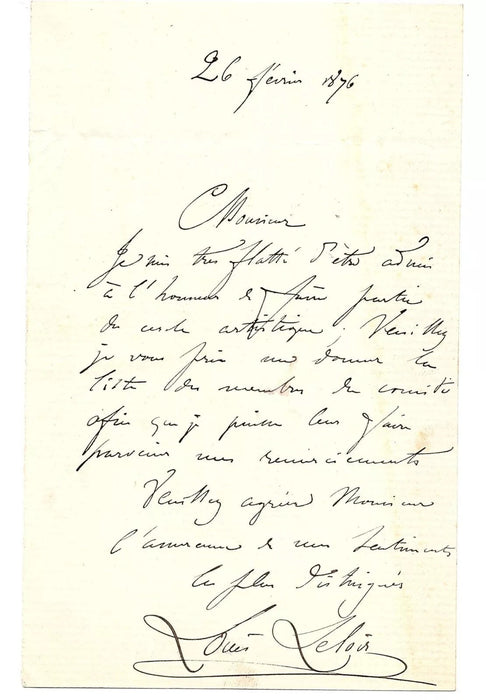 26 février 1876
Monsieur
Je suis très flatté d'être admis
à l'honneur de faire partie
du cercle artistique; Veuillez
je vous prie me donner la
liste des membres du comité
afin que je puisse leur faire
parvenir mes remerciements
Veuillez agréer Monsieur
l'assurance de mes sentiments
les plus distingués
Louis Leloir